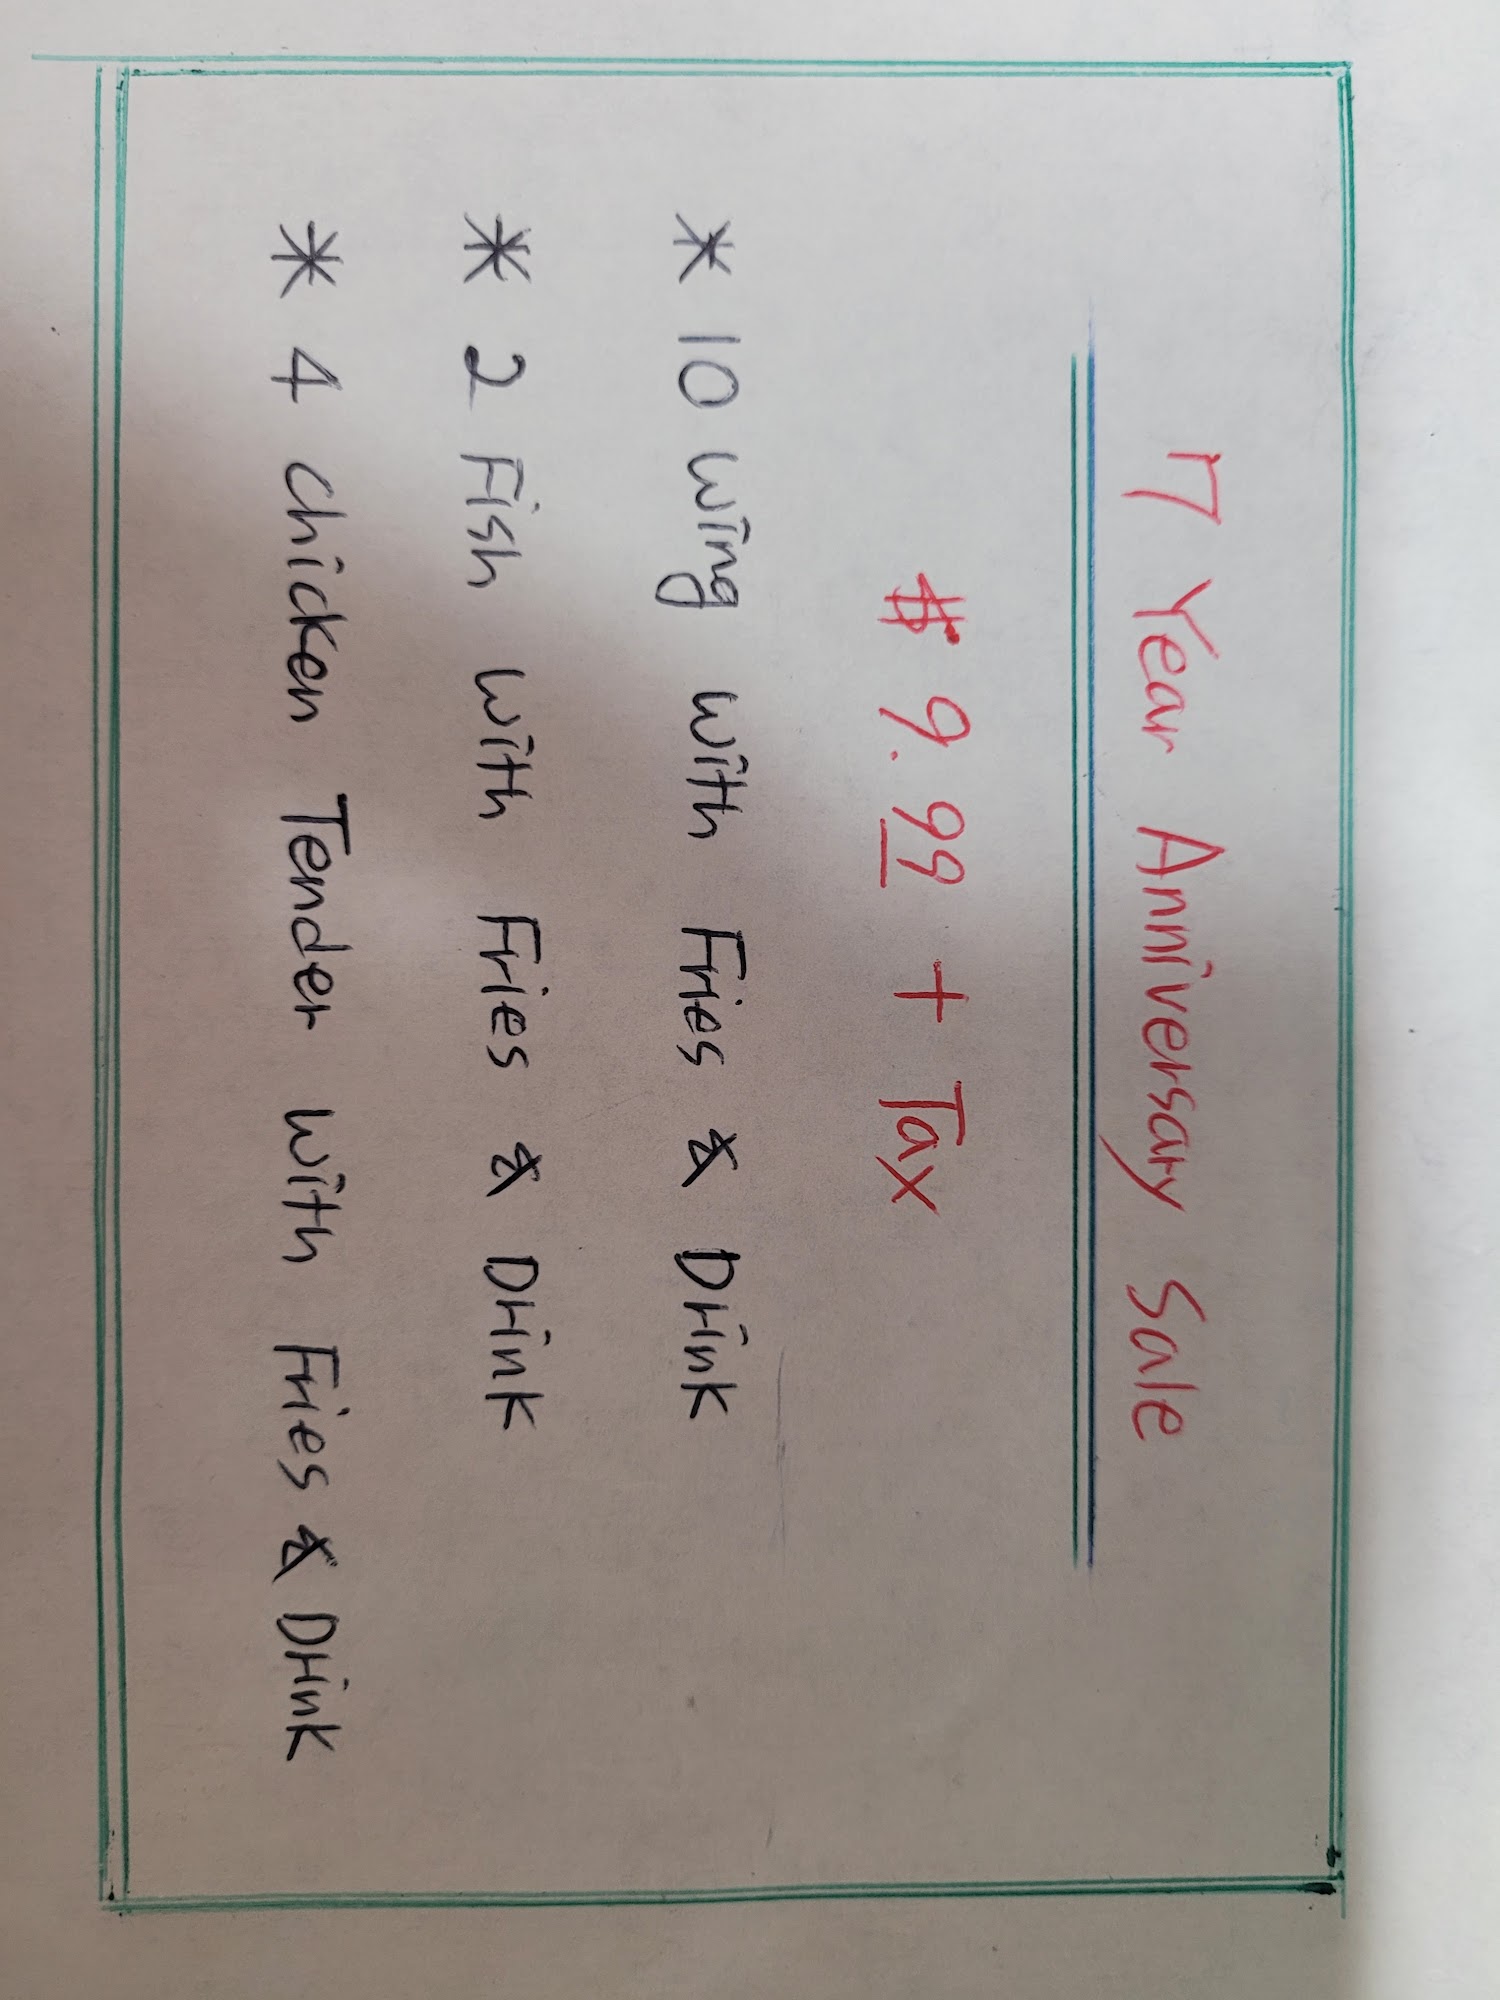 17 Year Anniversary Sale
$ 9.99 + Tax
* 10 wing with Fries & Drink
* 2 Fish with Fries & Drink
* 4 chicken Tender with Fries & Drink